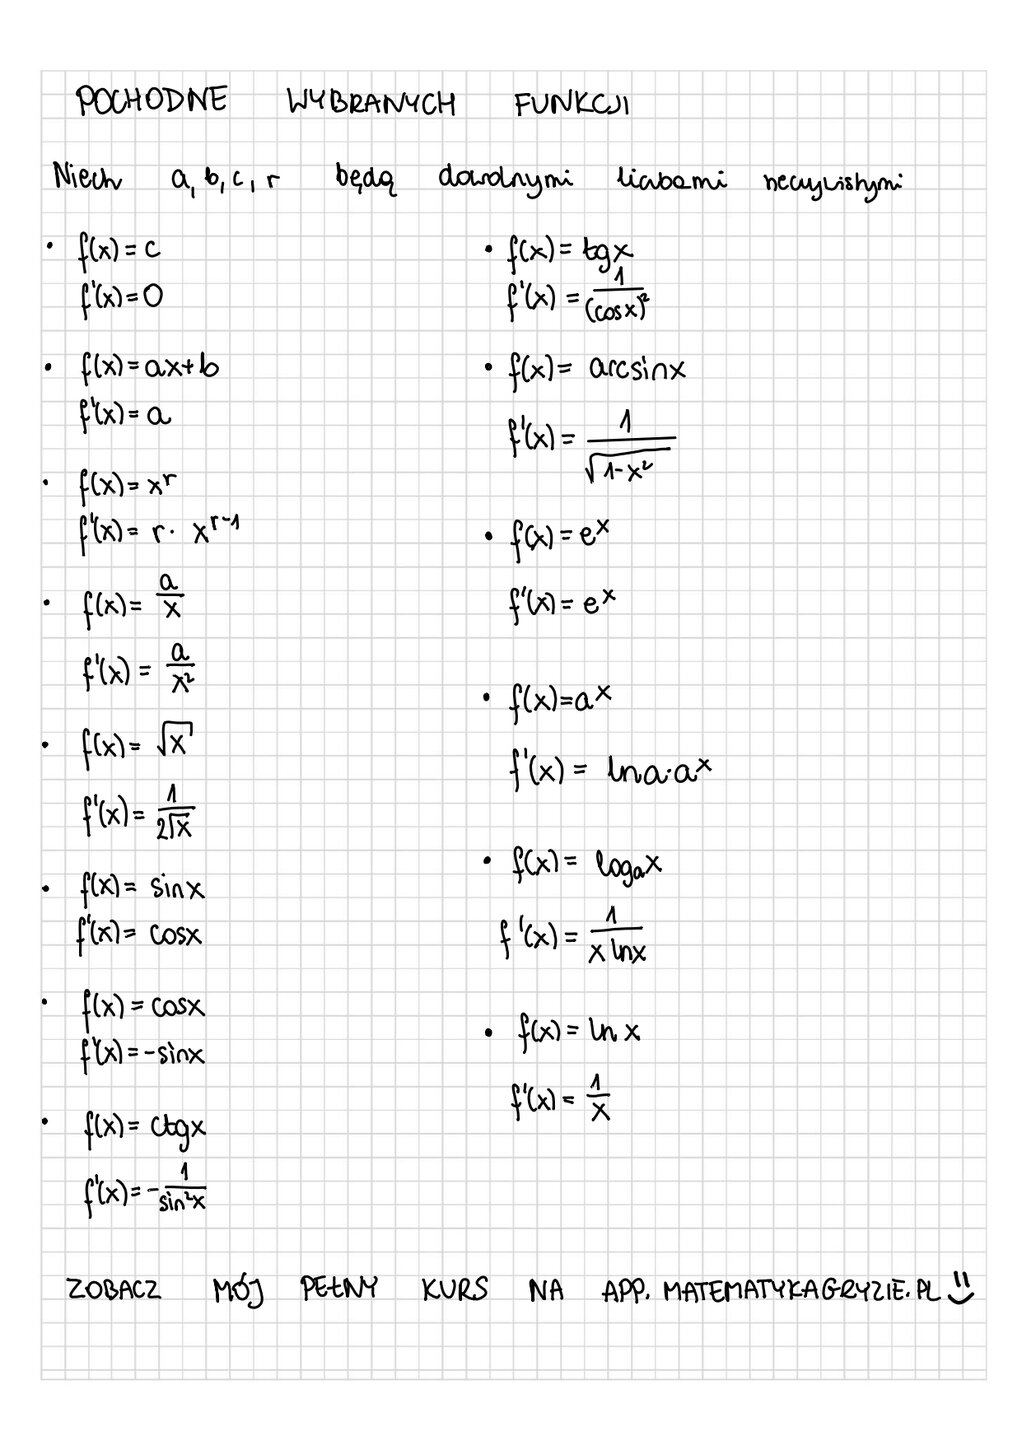 POCHODNE WYBRANYCH FUNKCJI
Niech a, b, c, r będą dowolnymi liczbami rzeczywistymi
• f(x) = c
f'(x) = 0
• f(x) = ax+b
f'(x) = a
• f(x) = x^r
f'(x) = r · x^(r-1)
• f(x) = a/x
f'(x) = a/x²
• f(x) = √x
f'(x) = 1/(2√x)
• f(x) = sinx
f'(x) = cosx
• f(x) = cosx
f'(x) = -sinx
• f(x) = ctgx
f'(x) = -1/(sin²x)
• f(x) = tgx
f'(x) = 1/(cosx)²
• f(x) = arcsinx
f'(x) = 1/√(1-x²)
• f(x) = e^x
f'(x) = e^x
• f(x) = a^x
f'(x) = lna·a^x
• f(x) = logₐx
f'(x) = 1/(x lnx)
• f(x) = ln x
f'(x) = 1/x
ZOBACZ MÓJ PEŁNY KURS NA APP.MATEMATYKAGRYZIE.PL